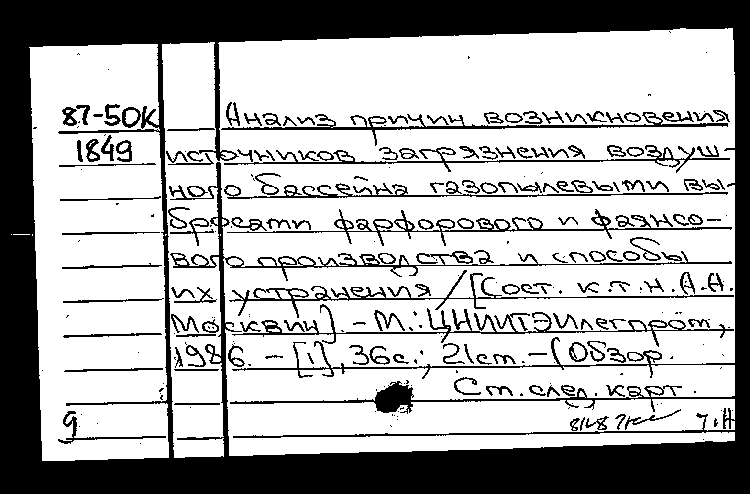 87-50К Анализ причин возникновения
1849 источников загрязнения воздуш-
ного бассейна газопылевыми вы-
бросами фарфорового и фаянсо-
вого производства и способы
их устранения / [Сост. к.т.н. А.А.
Москвин]. - М.: ЦНИИТЭИлегпром,
1986. - [1], 36с.; 21см. - (Обзор.
См. след. карт.
9